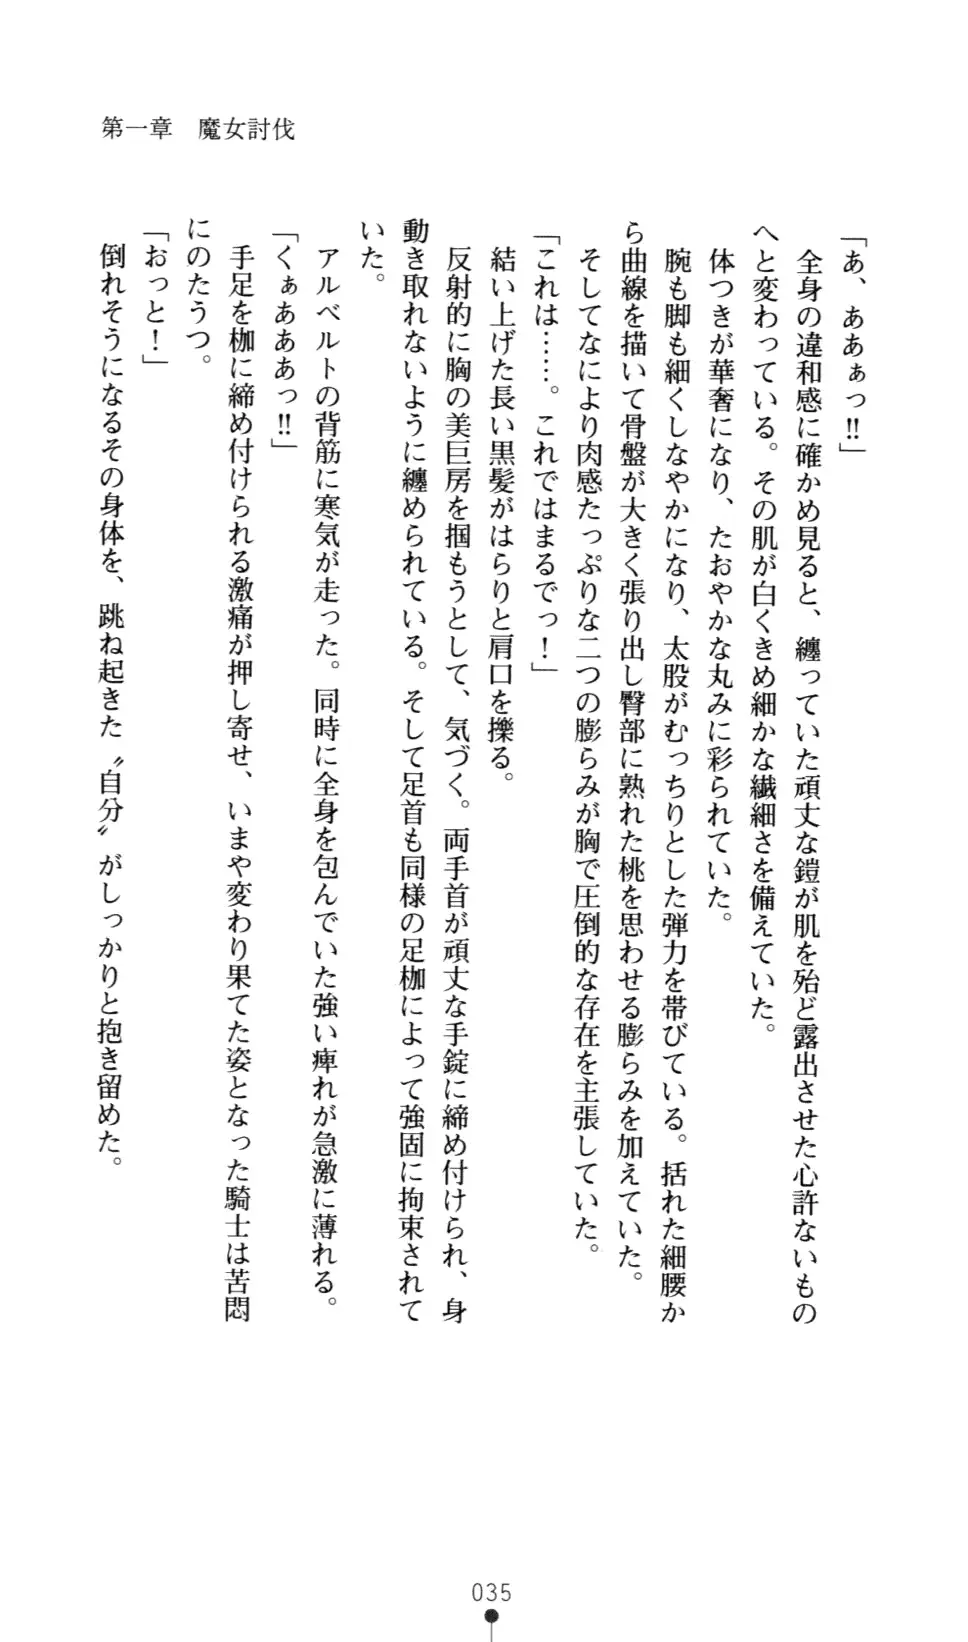 第一章　魔女討伐
「あ、ああぁっ‼」
　全身の違和感に確かめ見ると、纏っていた頑丈な鎧が肌を殆ど露出させた心許ないもの
へと変わっている。その肌が白くきめ細かな繊細さを備えていた。
　体つきが華奢になり、たおやかな丸みに彩られていた。
　腕も脚も細くしなやかになり、太股がむっちりとした弾力を帯びている。括れた細腰か
ら曲線を描いて骨盤が大きく張り出し臀部に熟れた桃を思わせる膨らみを加えていた。
　そしてなにより肉感たっぷりな二つの膨らみが胸で圧倒的な存在を主張していた。
「これは……。これではまるでっ！」
　結い上げた長い黒髪がはらりと肩口を擽る。
　反射的に胸の美巨房を掴もうとして、気づく。両手首が頑丈な手錠に締め付けられ、身
動き取れないように纏められている。そして足首も同様の足枷によって強固に拘束されて
いた。
　アルベルトの背筋に寒気が走った。同時に全身を包んでいた強い痺れが急激に薄れる。
「くぁあああっ‼」
　手足を枷に締め付けられる激痛が押し寄せ、いまや変わり果てた姿となった騎士は苦悶
にのたうつ。
「おっと！」
　倒れそうになるその身体を、跳ね起きた〝自分〟がしっかりと抱き留めた。
035